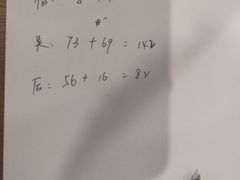 吴: 73 + 69 = 142
后: 56 + 16 = 82